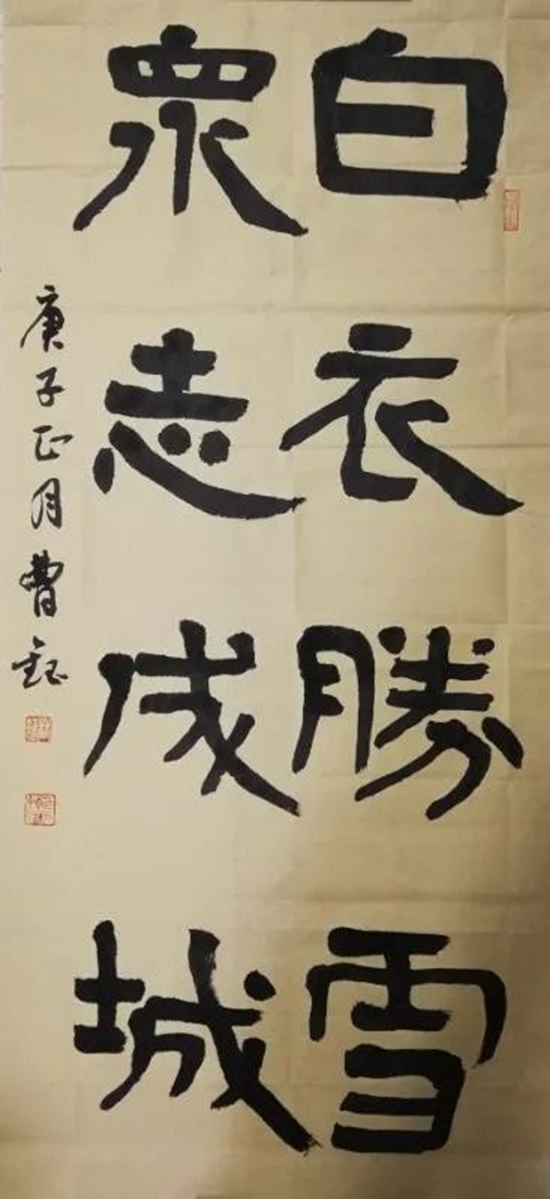 白衣勝雪
衆志成城
庚子正月曹鈺